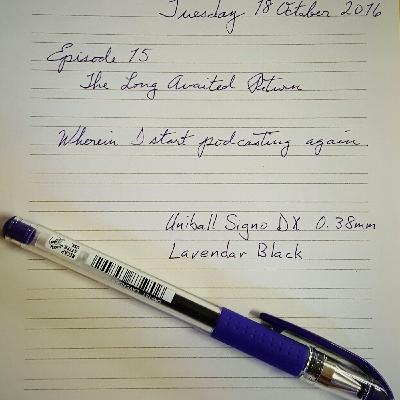 Tuesday 18 October 2016
Episode 15
The Long Awaited Return
Wherein I start podcasting again.
Uniball Signo DX 0.38mm
Lavendar Black